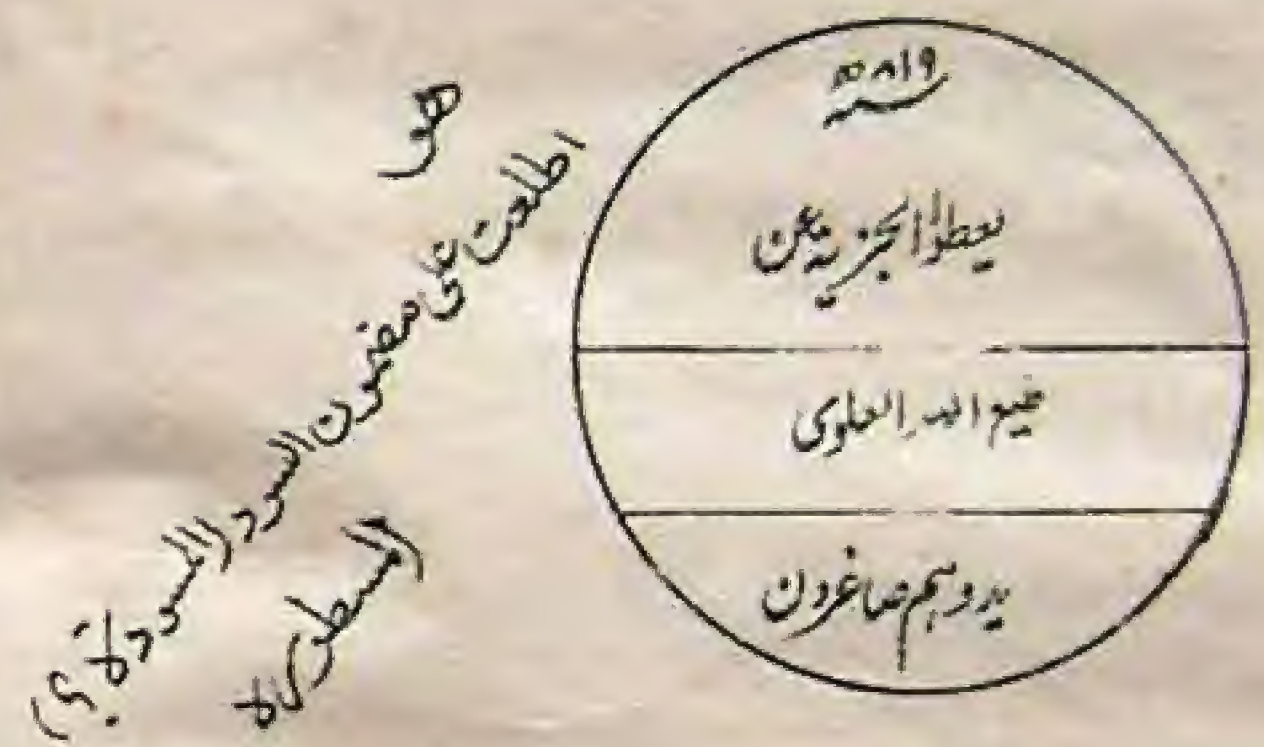 هو
اطلعت على مضمون السود (المسودة ؟)
المسطورة
سنه
يعطوا الجزية عن
الله العلوى
يد وهم صاغرون